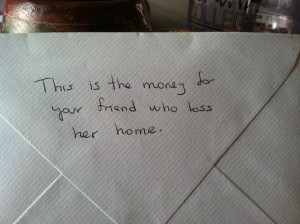 This is the money for
your friend who loss
her home.